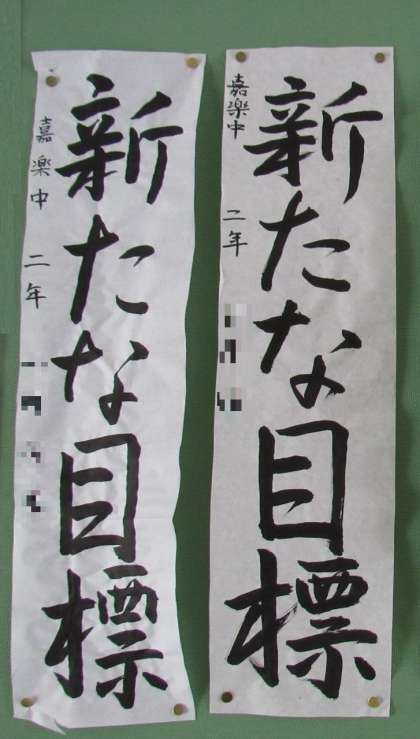 新たな目標
嘉楽中 二年
新たな目標
嘉楽中 二年